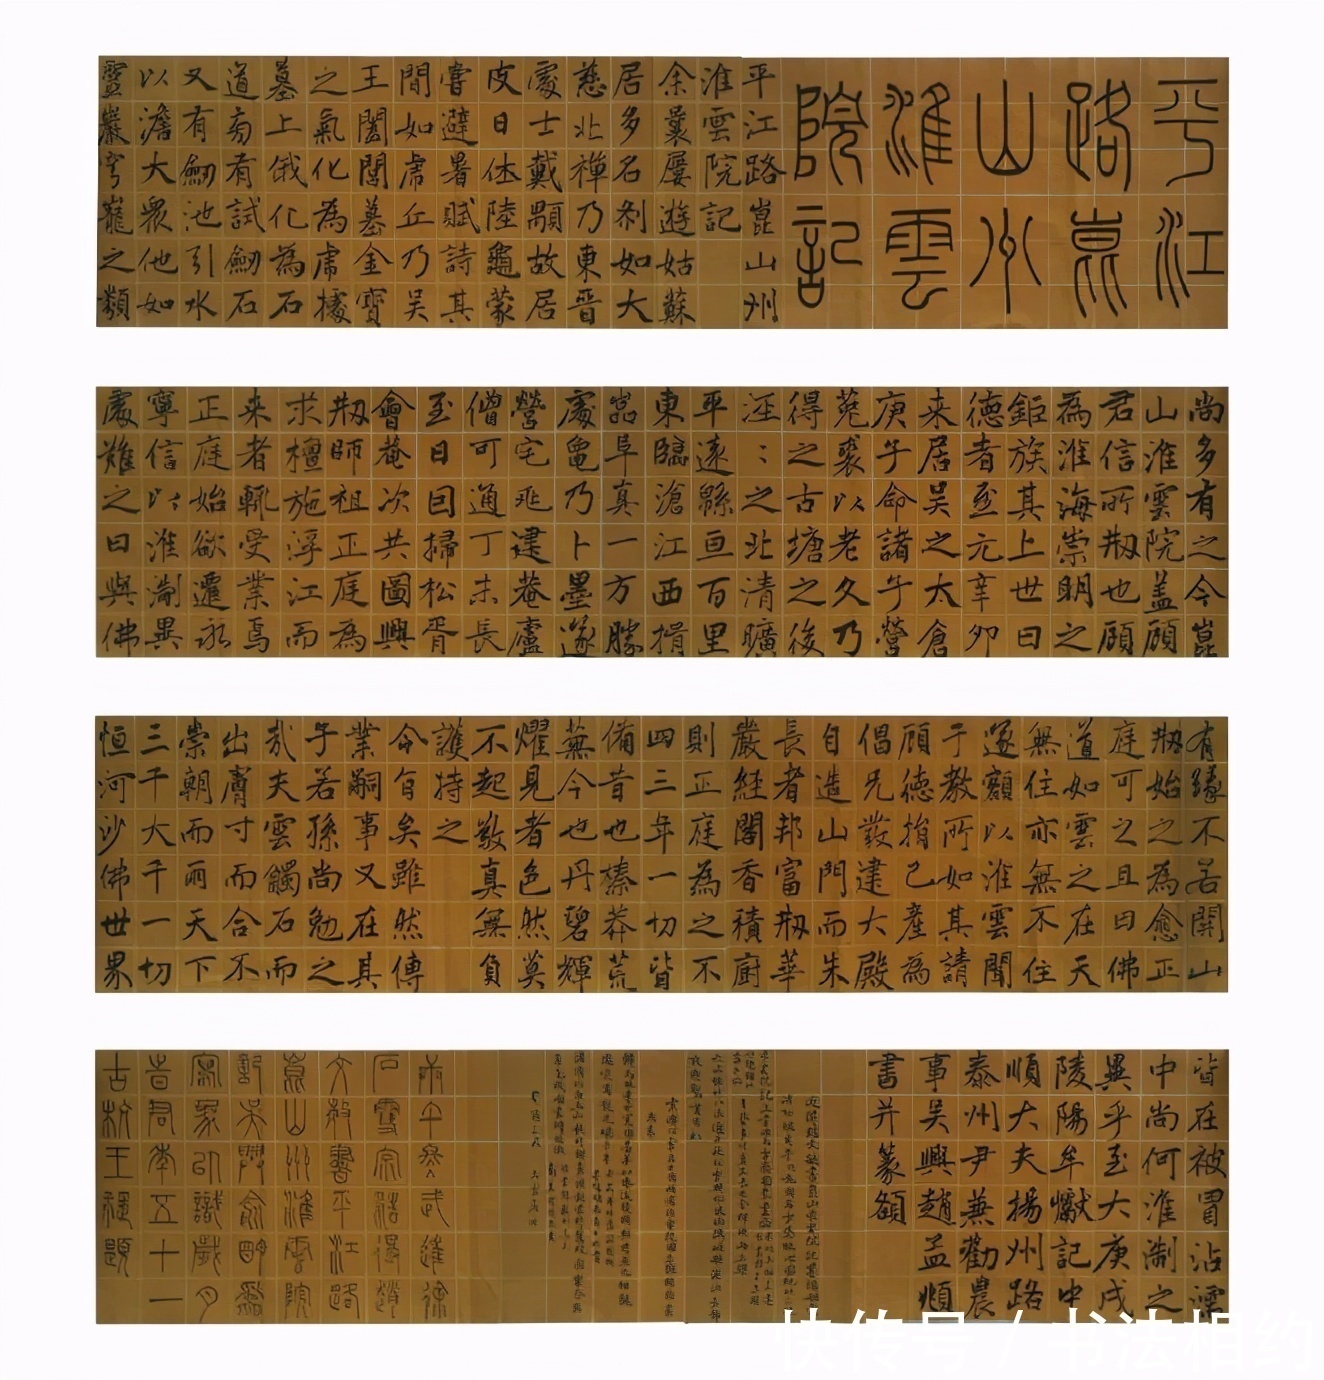 平江
路崑
山州
淮雲
院記
平江路崑山州
淮雲院記
余曩屢遊姑蘇
居多名剎如大
慈北禪乃東晉
處士戴顒故居
皮日休陸龜蒙
嘗避暑賦詩其
間如虎丘乃吴
王闔閭墓金寶
之氣化為虎據
墓上俄化為石
道旁有試劒石
又有劒池引水
以澹大衆他如
靈巖穹窿之類
尚多有之今崑
山淮雲院盖顧
君信所剏也顧
為淮海崇明之
鉅族其上世曰
德者至元辛卯
来居吴之太倉
庚子命諸子營
菟裘以老久乃
得之古塘之後
涇〻之北清曠
平遠緜亘百里
東臨滄江西揖
崑阜真一方勝
處龜乃卜墨遂
營宅兆建菴廬
僧可通丁未長
至日囙掃松胥
會菴次共圖興
剏師祖正庭為
求檀施浮江而
来者輒受業焉
正庭始欲遷永
寧信以淮淛異
處難之曰與佛
有緣不若開山
剏始之為愈正
庭可之且曰佛
道如雲之在天
無住亦無不住
遂額以淮雲聞
于教所如其請
顧德捐己産為
倡兄發建大殿
自造山門而朱
長者邦富剏華
嚴經閣香積廚
則正庭為之不
四三年一切皆
備昔也榛莽荒
蕪今也丹碧輝
燿見者色然莫
不起敬真無負
護持之
令旨矣雖然傳
業嗣事又在其
子若孫尚勉之
㢤夫雲觸石而
出膚寸而合不
崇朝而雨天下
三千大千一切
恒河沙佛世界
皆在被冒沾濡
中尚何淮淛之
異乎至大庚戌
陵陽牟巘記中
順大夫揚州路
泰州尹兼勸農
事吴興趙孟頫
書并篆額
石雪宗浩得趙
文敏書平江路
崑山州淮雲院
記吴門俞明鑑
篆家印識歲月
古杭王禔題
快传号 / 书法相约